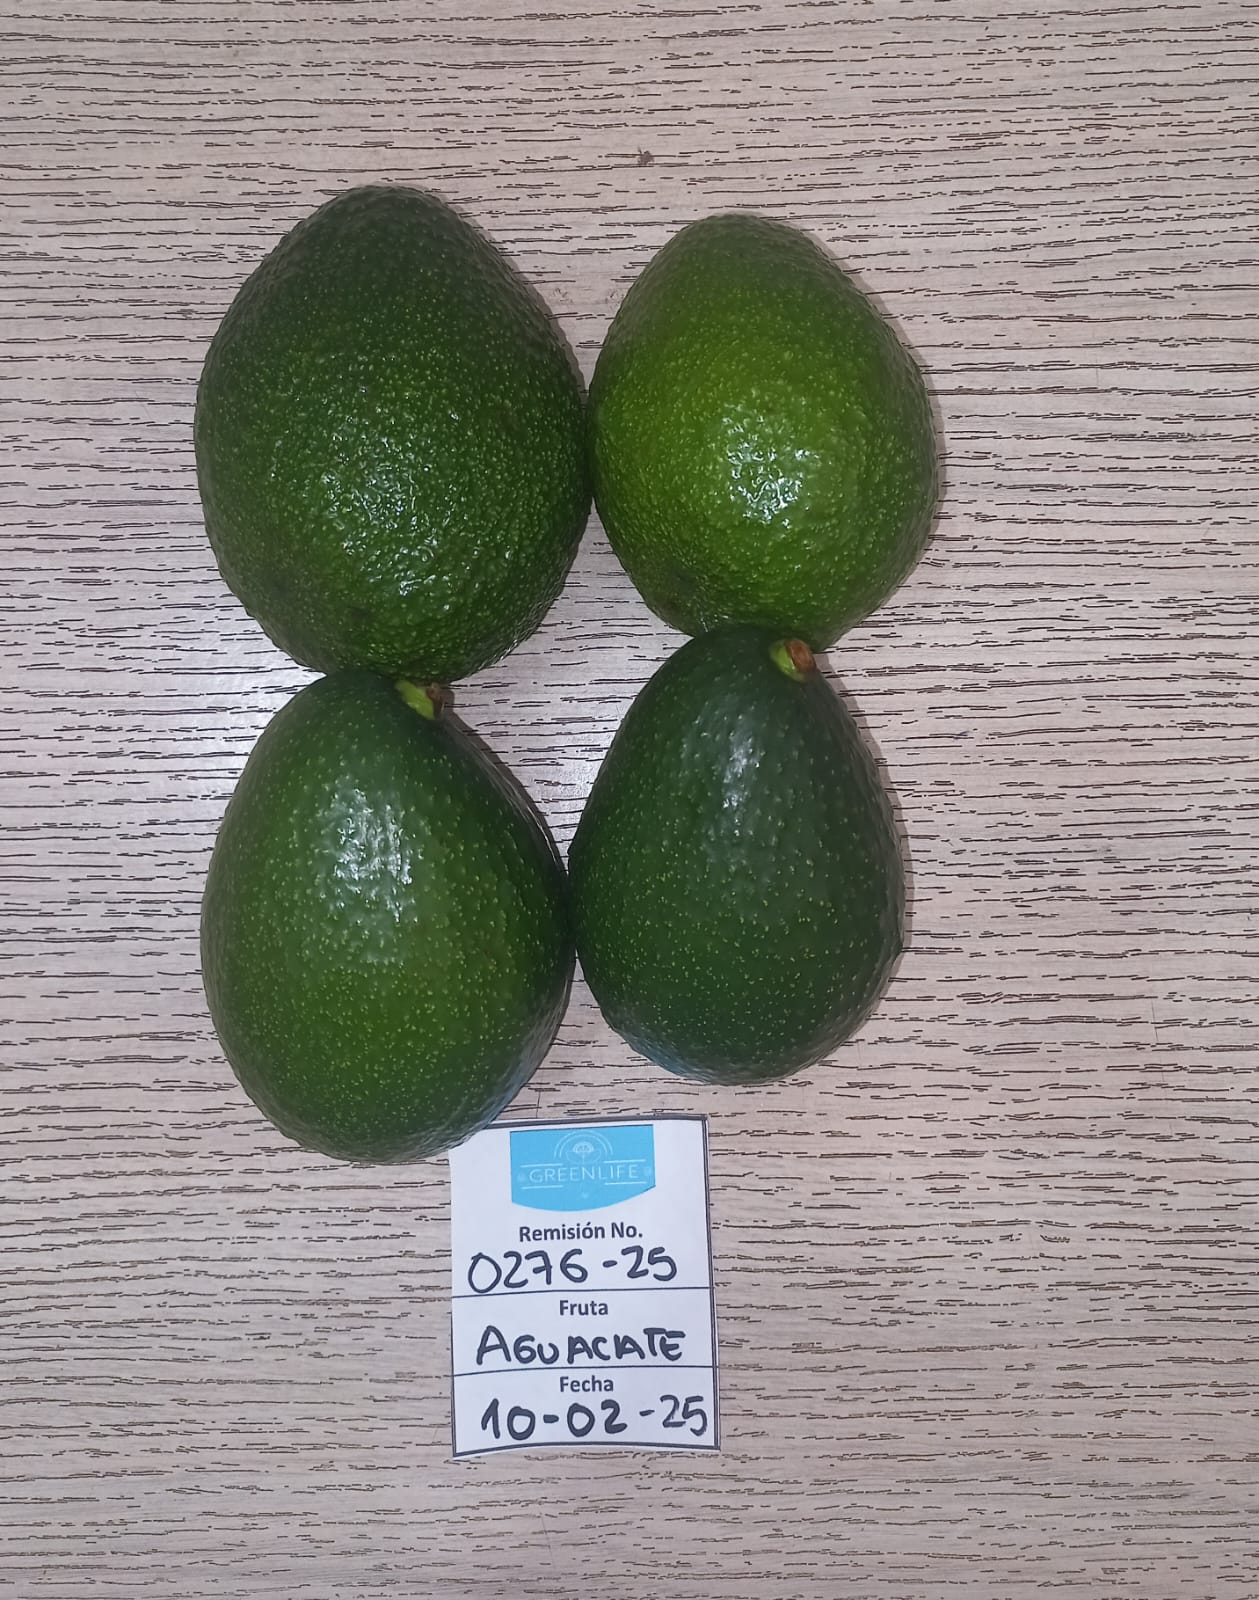 GREENLIFE
Remisión No.
0276-25
Fruta
AGUACATE
Fecha
10-02-25